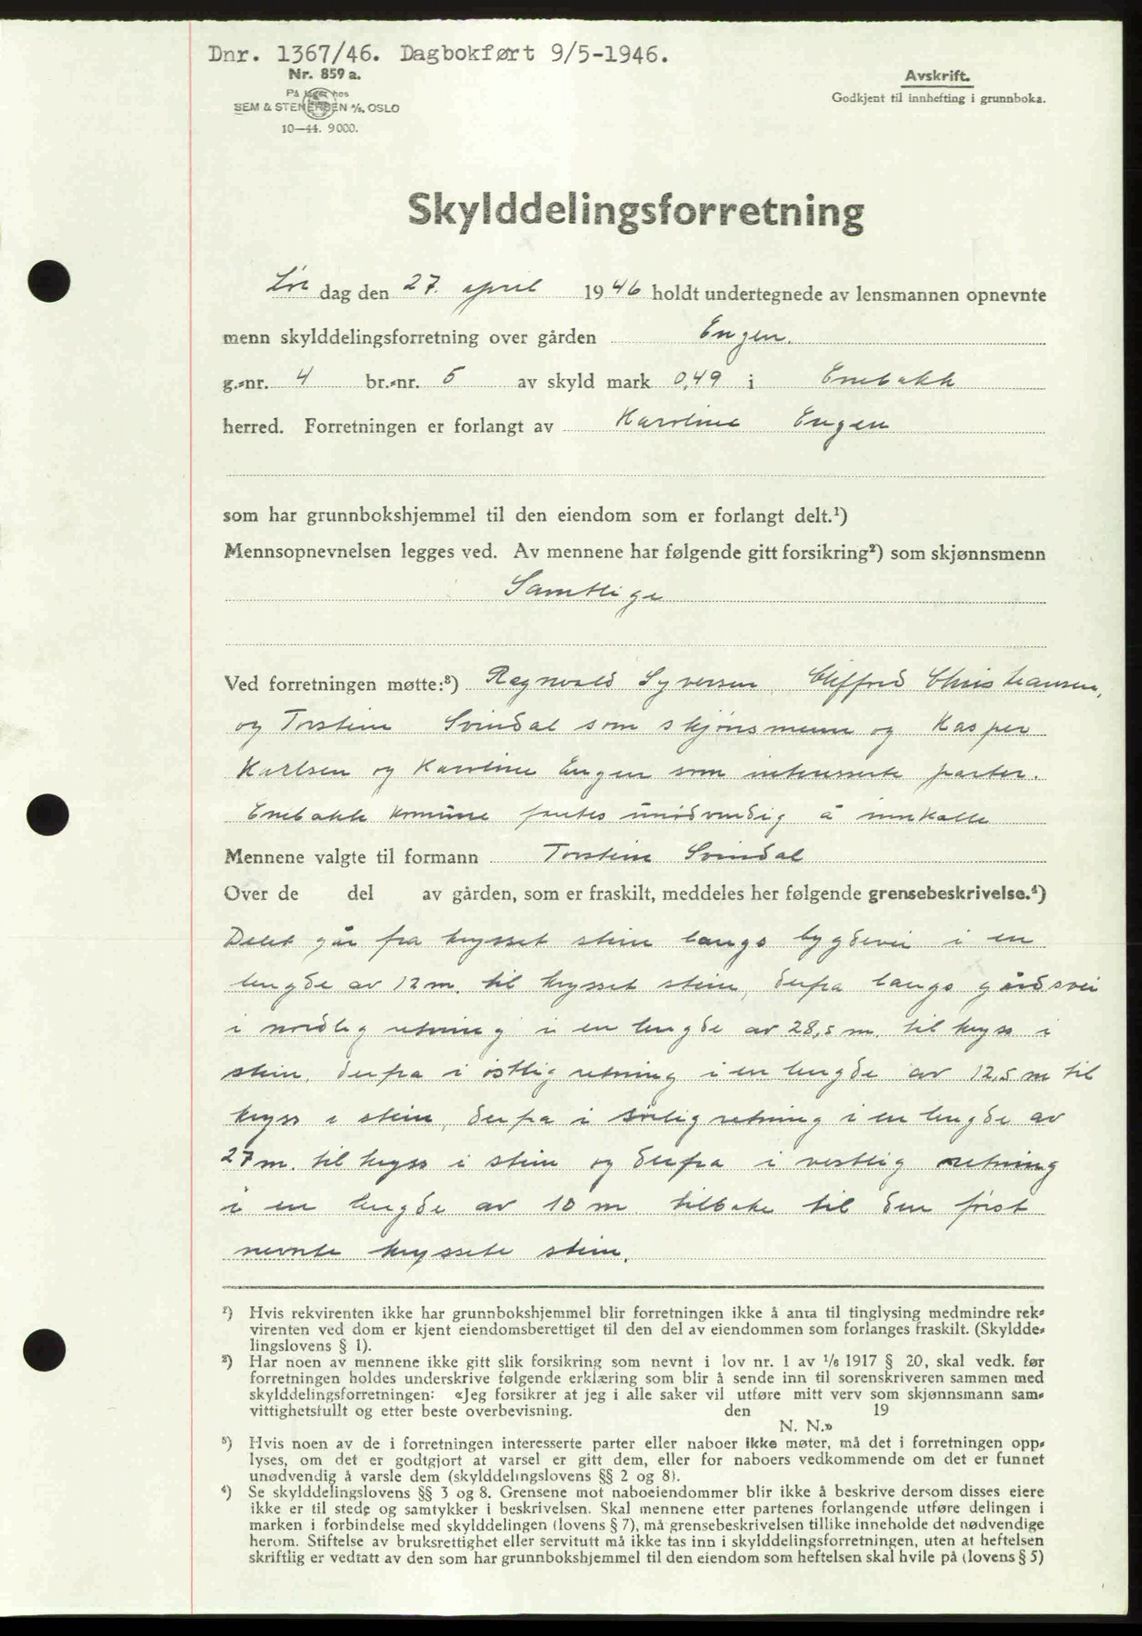 Dnr. 1367/46. Dagbokført 9/5-1946.
Nr. 859 a.
På lager hos
SEM & STENERSEN A/S, OSLO
10—44. 9000.
Avskrift.
Godkjent til innhefting i grunnboka.
Skylddelingsforretning
Lør dag den 27. april 1946 holdt undertegnede av lensmannen opnevnte
menn skylddelingsforretning over gården Engen.
g.-nr. 4 br.-nr. 5 av skyld mark 0,49 i Enebakk
herred. Forretningen er forlangt av Karoline Engen
som har grunnbokshjemmel til den eiendom som er forlangt delt.¹)
Mennsopnevnelsen legges ved. Av mennene har følgende gitt forsikring²) som skjønnsmenn
Samtlige
Ved forretningen møtte:³) Ragnvald Syversen, Clifford Christiansen,
og Torstein Svindal som skjønsmenn og Kasper
Karlsen og Karoline Engen som interesserte parter.
Enebakk komune fantes unødvendig å innkalle
Mennene valgte til formann Torstein Svindal
Over de del av gården, som er fraskilt, meddeles her følgende grensebeskrivelse.⁴)
Delet går fra krysset stein langs bygdevei i en
lengde av 12 m. til krysset stein, derfra langs gårdsvei
i nordlig retning i en lengde av 28,5 m. til kryss i
stein, derfra i østlig retning i en lengde av 12,5 m til
kryss i stein, derfra i sørlig retning i en lengde av
27 m. til kryss i stein og derfra i vestlig retning
i en lengde av 10 m tilbake til den først
nevnte kryssete stein.
¹) Hvis rekvirenten ikke har grunnbokshjemmel blir forretningen ikke å anta til tinglysing medmindre rek-
virenten ved dom er kjent eiendomsberettiget til den del av eiendommen som forlanges fraskilt. (Skyldde-
lingslovens § 1).
²) Har noen av mennene ikke gitt slik forsikring som nevnt i lov nr. 1 av 1/6 1917 § 20, skal vedk. før
forretningen holdes underskrive følgende erklæring som blir å sende inn til sorenskriveren sammen med
skylddelingsforretningen: «Jeg forsikrer at jeg i alle saker vil utføre mitt verv som skjønnsmann sam-
vittighetsfullt og etter beste overbevisning. den 19
N. N.»
³) Hvis noen av de i forretningen interesserte parter eller naboer ikke møter, må det i forretningen opp-
lyses, om det er godtgjort at varsel er gitt dem, eller for naboers vedkommende om det er funnet
unødvendig å varsle dem (skylddelingslovens §§ 2 og 8).
⁴) Se skylddelingslovens §§ 3 og 8. Grensene mot naboeiendommer blir ikke å beskrive dersom disses eiere
ikke er til stede og samtykker i beskrivelsen. Skal mennene etter partenes forlangende utføre delingen i
marken i forbindelse med skylddelingen (lovens § 7), må grensebeskrivelsen tillike inneholde det nødvendige
herom. Stiftelse av bruksrettighet eller servitutt må ikke tas inn i skylddelingsforretningen, uten at heftelsen
skriftlig er vedtatt av den som har grunnbokshjemmel til den eiendom som heftelsen skal hvile på (lovens § 5)